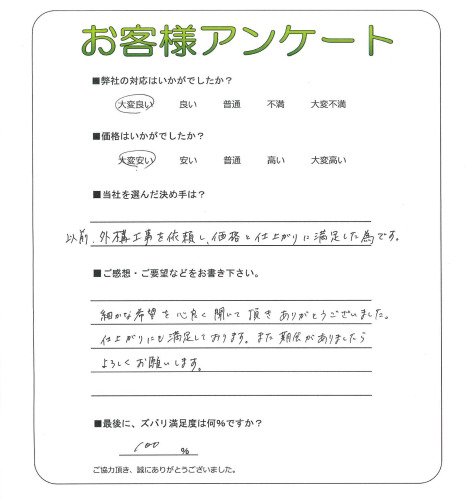 お客様アンケート
■弊社の対応はいかがでしたか？
大変良い 良い 普通 不満 大変不満
■価格はいかがでしたか？
大変安い 安い 普通 高い 大変高い
■当社を選んだ決め手は？
以前、外構工事を依頼し、価格と仕上がりに満足した為です。
■ご感想・ご要望などをお書き下さい。
細かな希望を心良く聞いて頂きありがとうございました。
仕上がりにも満足しております。また機会がありましたら
よろしくお願いします。
■最後に、ズバリ満足度は何％ですか？
100 ％
ご協力頂き、誠にありがとうございました。